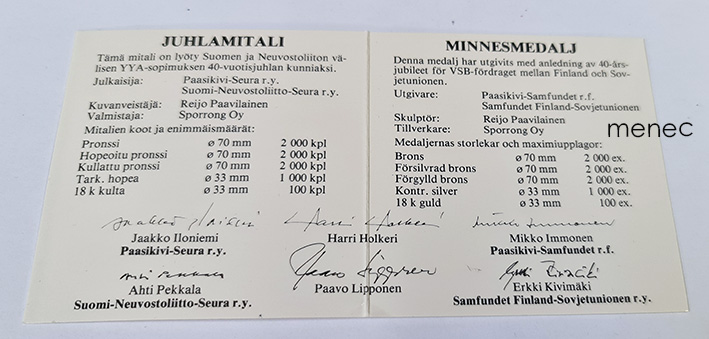 JUHLAMITALI
Tämä mitali on lyöty Suomen ja Neuvostoliiton vä-
lisen YYA-sopimuksen 40-vuotisjuhlan kunniaksi.
Julkaisija: Paasikivi-Seura r.y.
Suomi-Neuvostoliitto-Seura r.y.
Kuvanveistäjä: Reijo Paavilainen
Valmistaja: Sporrong Oy
Mitalien koot ja enimmäismäärät:
Pronssi ø 70 mm 2 000 kpl
Hopeoitu pronssi ø 70 mm 2 000 kpl
Kullattu pronssi ø 70 mm 2 000 kpl
Tark. hopea ø 33 mm 1 000 kpl
18 k kulta ø 33 mm 100 kpl
Jaakko Iloniemi
Jaakko Iloniemi
Paasikivi-Seura r.y.
Ahti Pekkala
Ahti Pekkala
Suomi-Neuvostoliitto-Seura r.y.
Harri Holkeri
Harri Holkeri
Paavo Lipponen
Paavo Lipponen
MINNESMEDALJ
Denna medalj har utgivits med anledning av 40-års-
jubileet för VSB-fördraget mellan Finland och Sov-
jetunionen.
Utgivare: Paasikivi-Samfundet r.f.
Samfundet Finland-Sovjetunionen
Skulptör: Reijo Paavilainen
Tillverkare: Sporrong Oy
menec
Medaljernas storlekar och maximiupplagor:
Brons ø 70 mm 2 000 ex.
Försilvrad brons ø 70 mm 2 000 ex.
Förgylld brons ø 70 mm 2 000 ex.
Kontr. silver ø 33 mm 1 000 ex.
18 k guld ø 33 mm 100 ex.
Mikko Immonen
Mikko Immonen
Paasikivi-Samfundet r.f.
Erkki Kivimäki
Samfundet Finland-Sovjetunionen r.y.